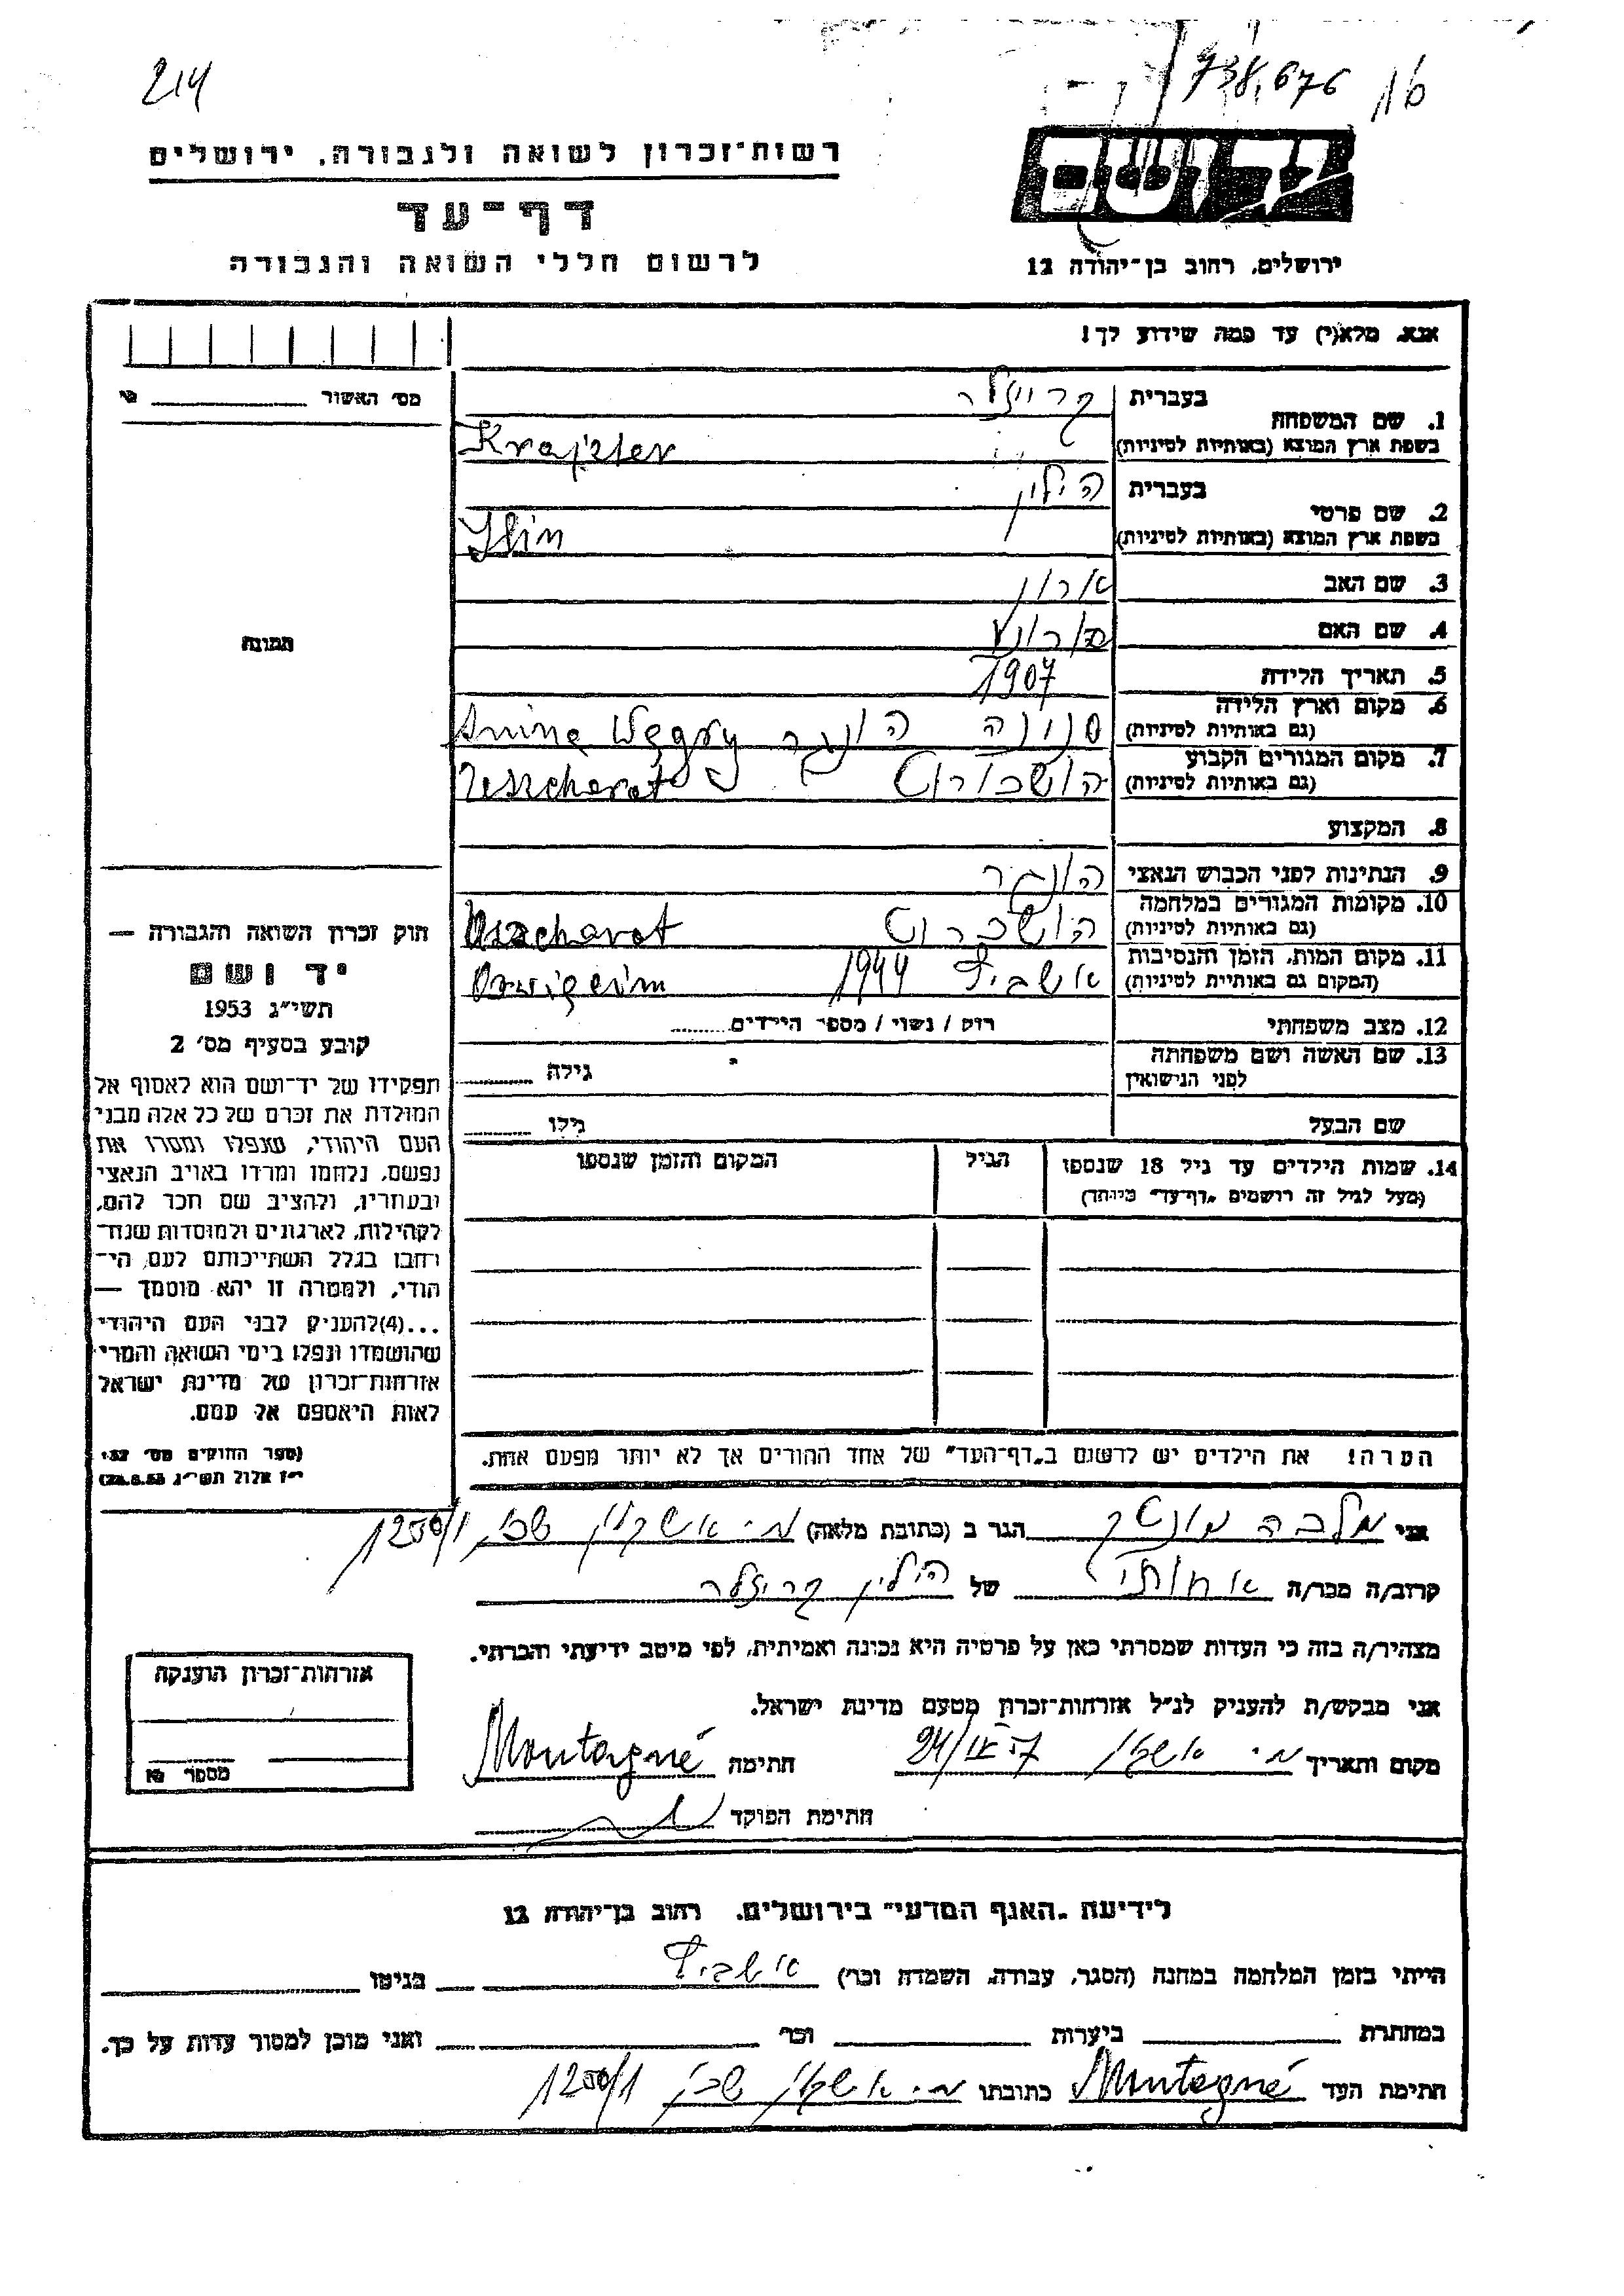 214
738,676
רשות־זכרון לשואה ולגבורה, ירושלים
דף־עד
לרשום חללי השואה והגבורה
יד ושם
ירושלים, רחוב בן־יהודה 12
אנא, מלא(י) עד כמה שידוע לך!
מס׳ האשור
1. שם המשפחה
בעברית
בשפת ארץ המוצא (באותיות לטיניות)
Krajzler
2. שם פרטי
בעברית הילין
בשפת ארץ המוצא (באותיות לטיניות)
Ilin
3. שם האב ארון
4. שם האם
5. תאריך הלידה 1907
6. מקום וארץ הלידה
(גם באותיות לטיניות)
הונגר Węgry
7. מקום המגורים הקבוע
(גם באותיות לטיניות)
8. המקצוע
9. הנתינות לפני הכבוש הנאצי הונגר
10. מקומות המגורים במלחמה
(גם באותיות לטיניות)
Uszcharot
11. מקום המות, הזמן והנסיבות
(המקום גם באותיות לטיניות)
1944
12. מצב משפחתי
רוק / נשוי / מספר הילדים
13. שם האשה ושם משפחתה
לפני הנישואין
גילה
שם הבעל
גילו
14. שמות הילדים עד גיל 18 שנספו
(מעל לגיל זה רושמים „דף־עד״ מיוחד)
הגיל
המקום והזמן שנספו
הערה! את הילדים יש לרשום ב„דף־העד״ של אחד ההורים אך לא יותר מפעם אחת.
תמונה
חוק זכרון השואה והגבורה —
יד ושם
תשי״ג 1953
קובע בסעיף מס׳ 2
תפקידו של יד־ושם הוא לאסוף אל
המולדת את זכרם של כל אלה מבני
העם היהודי, שנפלו ומסרו את
נפשם, נלחמו ומרדו באויב הנאצי
ובעוזריו, ולהציב שם וזכר להם,
לקהילות, לארגונים ולמוסדות שנח־
רבו בגלל השתייכותם לעם הי־
הודי, ולמטרה זו יהא מוסמך —
...(4)להעניק לבני העם היהודי
שהושמדו ונפלו בימי השואה והמרי
אזרחות־זכרון של מדינת ישראל
לאות היאספם אל עמם.
(ספר החוקים מס׳ 132,
י״ז אלול תשי״ג 28.8.53)
אני מלבה הגר ב (כתובת מלאה) אשקלון 1250/1
קרוב/ה מכר/ה אחותי של הילין
מצהיר/ה בזה כי העדות שמסרתי כאן על פרטיה היא נכונה ואמיתית, לפי מיטב ידיעתי והכרתי.
אני מבקש/ת להעניק לנ״ל אזרחות־זכרון מטעם מדינת ישראל.
מקום ותאריך חתימה Montagné
חתימת הפוקד
אזרחות־זכרון הוענקה
מספר
לידיעת „האגף המדעי״ בירושלים, רחוב בן־יהודה 12
הייתי בזמן המלחמה במחנה (הסגר, עבודה, השמדה וכו׳) בגיטו
במחתרת ביערות וכו׳ ואני מוכן למסור עדות על כך.
חתימת העד Montagné כתובתו 1250/1